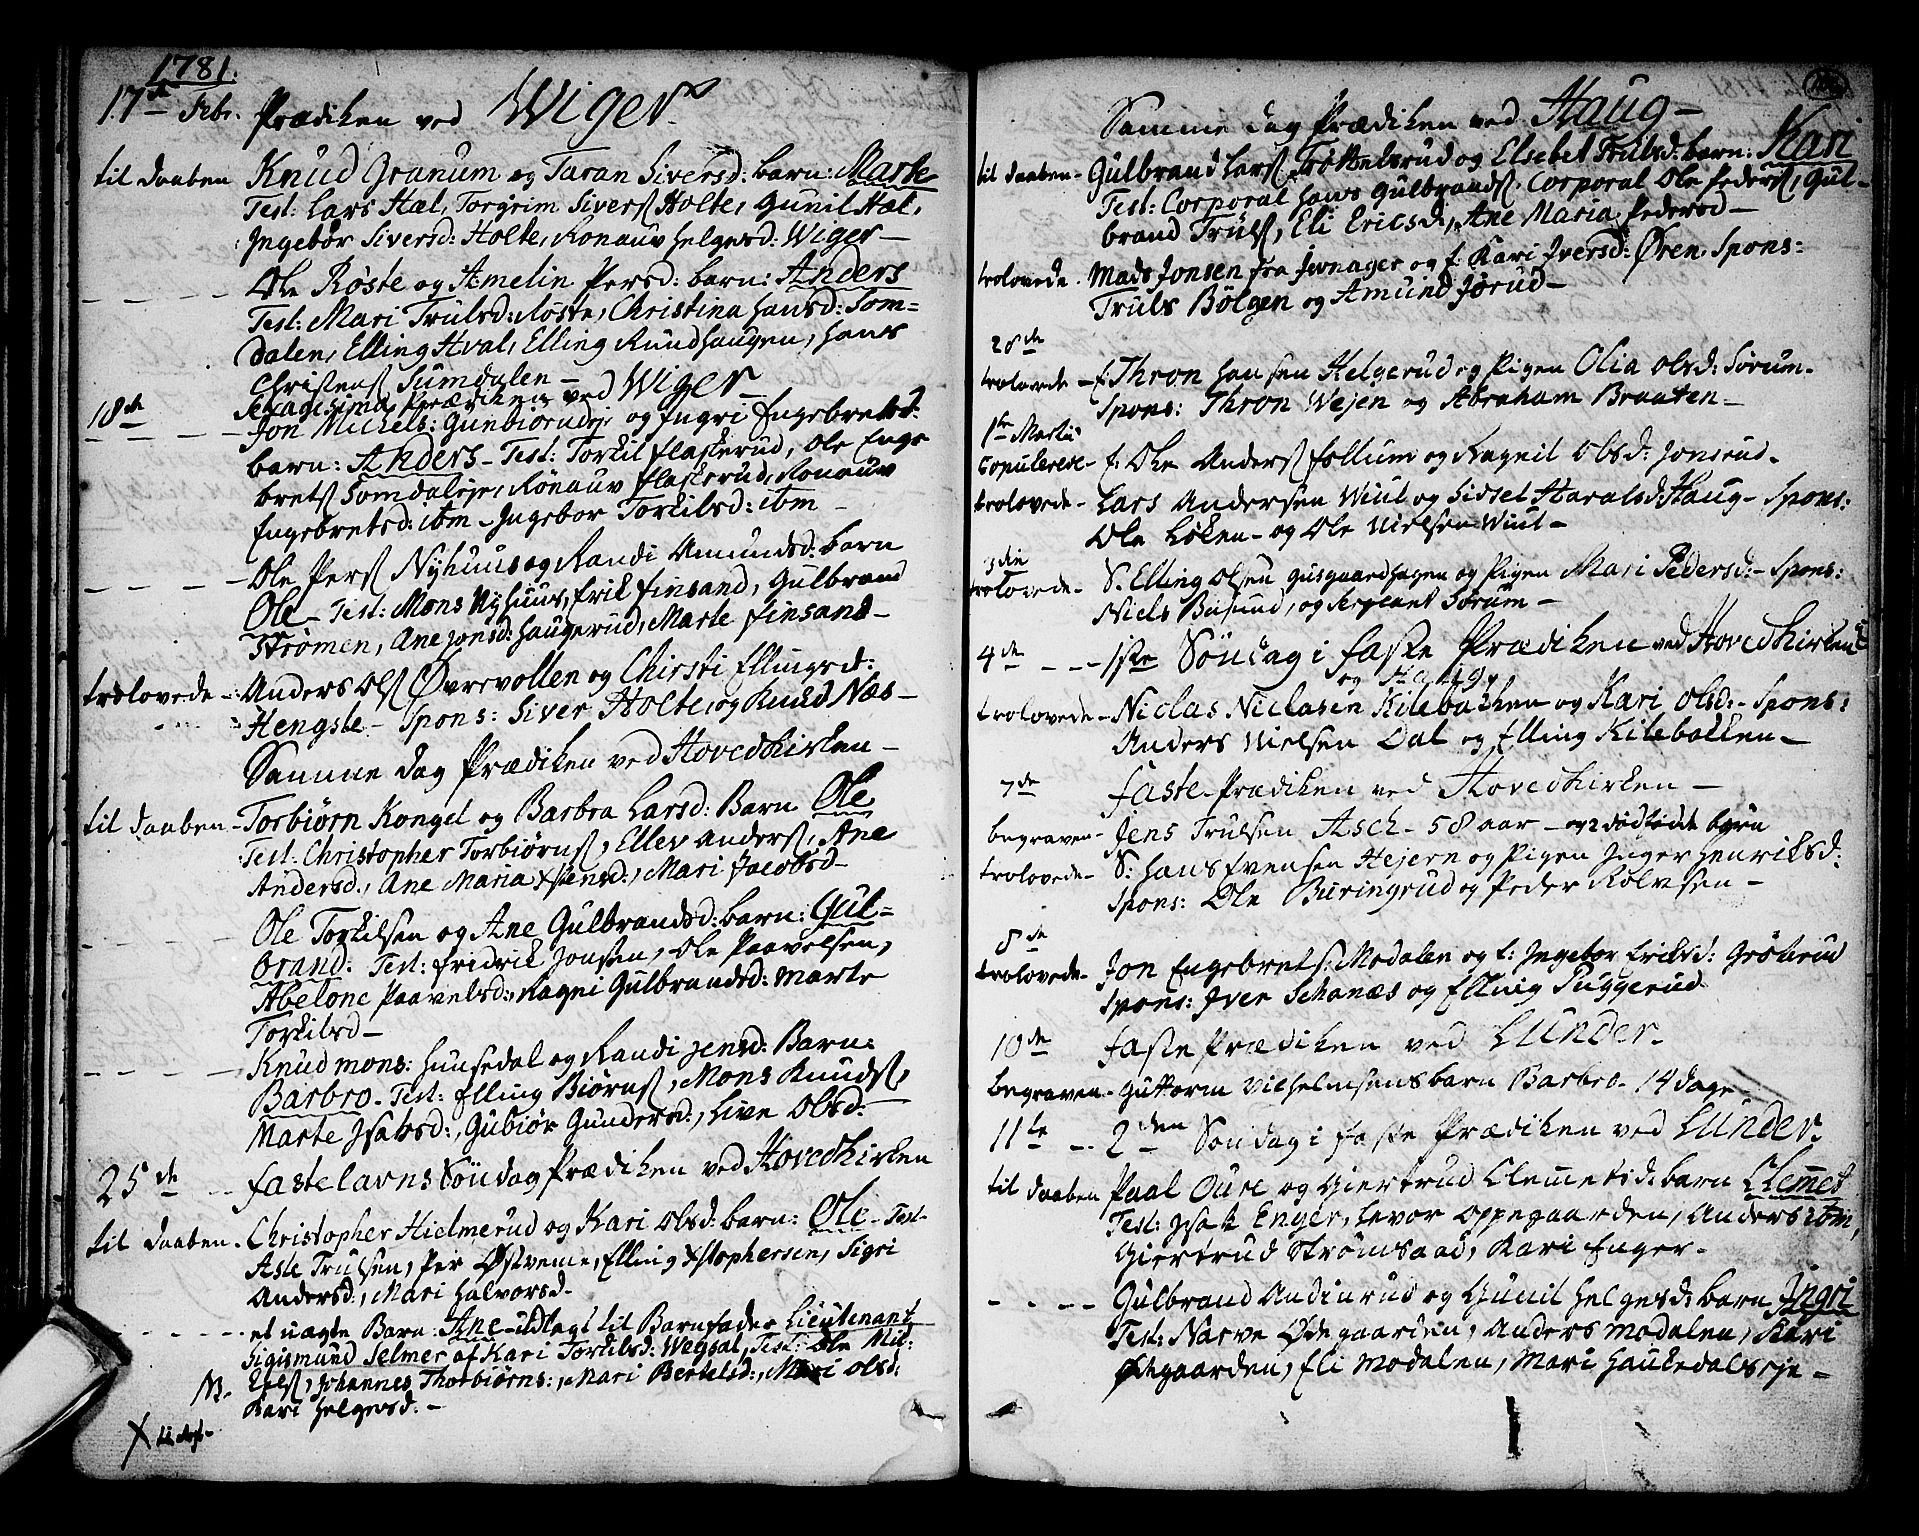 1781.
17de Febr. Prædiken ved Wiger.
til daaben Knud Granum og Taran Siversd: barn: Marte
Test: Lars Hæl, Torgrim Siversſ Holte, Gunil Hæl,
Ingebør Siversd: Holte, Ronauv Helgesd: Wiger —
Ole Røste og Amelin Persd: barn: Anders
Test: Mari Trulsd: Røste, Christina Hansd: Som=
dalen, Elling Hval, Elling Rundhaugen, Hans
Christensſ Sumdalen —
18de Sexagesima Prædiken ved Wiger —
Jon Michels: Gunbiørudeje og Ingri Engebretsd:
barn: Anders — Test: Torkil Flaskerud, Ole Enge
bretsſ Somdalseje, Rønauv Flaskerud, Ronauv
Engebretsd: ibm — Ingebor Torkilsd: ibm —
Ole Persſ Nyhuus og Randi Amundsd: barn
Ole — Test: Mons Nyhuus, Erik Finsand, Gulbrand
Strømen, Ane Jonsd: Haugerud, Marte Finsand —
trolovede — Anders Olsſ Øvrevollen og Chirsti Ellingsd:
Hengsle — Spons: Siver Holte og Knud Næs —
Samme dag Prædiken ved Hovedkirken —
til daaben — Torbiørn Kongel og Barbra Larsd: Barn Ole
Test: Christopher Torbiørnsſ, Ellev Andersſ, Ane
Andersd:, Ane Maria Xstensd:, Mari Jacobsd —
Ole Torkilsen og Ane Gulbrandsd: barn: Gul=
brand. Test: Fridrik Jonsen, Ole Paavelsen,
Abelone Paavelsd:, Ragni Gulbrandsd: Marte
Torkilsd —
Knud Mons: Hunsedal og Randi Jensd: Barn:
Barbro. Test: Elling Biørnsſ, Mons Knudsſ,
Marte Isaksd:, Gubiør Gundersd:, Live Olsd:
25de Fastelavns Søndag Prædiken ved Hovedkirken
til daaben. Christopher Hielmerud og Kari Olsd: barn: Ole — Test
Aste Trulsen, Per Østveme, Elling Xstophersen, Sigri
Andersd:, Mari Halvorsd —
et uægte Barn: Ane — udlagt til Barnfader Lieutenant
Sigismund Selmer af Kari Torkilsd: Wegsal, Test: Ole Mil:
Johannes Thorbiørns:, Mari Bertelsd:, Mari Olsd:
Kari Helgesd. —
Samme dag Prædiken ved Haug —
til daaben — Gulbrand Larsſ Trøttelsrud og Elsebet Trulsd: barn: Kari
Test: Corporal Hans Gulbrandsſ, Corporal Ole Pedersſ, Gul=
brand Trulsſ, Eli Ericsd:, Ane Maria Pedersd —
trolovede. Mads Jonsen fra Jevnager og f: Kari Iversd: Øren Spons:
Truls Bølgen og Amund Jørud —
28de
trolovede — f: Thron Hansen Helgerud og Pigen Olia Olsd: Sørum —
Spons: Thron Wejen og Abraham Braaten —
1ste Martii
Copulerede — f: Ole Andersſ Follum og Ragnil Olsd: Jonsrud.
trolovede — Lars Andersen Wiul og Sidsel Haralsd: Haug — Spons:
Ole Løken — og Ole Nielsen Wiul —
3die
trolovede — S. Elling Olsen Gusgaardhagen og Pigen Mari Pedersd: — Spons:
Niels Busund, og Sergeant Sørum —
4de — 1ste Søndag i Faste Prædiken ved Hovedkirken
og Haug
trolovede — Niclas Niclasen Kilebakken og Kari Olsd: — Spons:
Anders Nielsen Dal og Elling Kilebakken —
7de Faste-Prædiken ved Hovedkirken —
begraven — Jens Trulsen Asch — 58 aar — og 2 dødfødde børn
trolovede — S: Hans Evensen Hejern og Pigen Inger Henriksd:
Spons: Ole Buringrud og Peder Rolvsen —
8de
trolovede — Jon Engebrets: Modalen og f: Ingebor Eriksd: Grøterud
Spons: Iver Skanæs og Elling Tuggerud
10de Faste Prædiken ved Lunder.
begraven — Guttorm Vilhelmsens barn Barbro — 14 dage —
11te — 2den Søndag i Faste Prædiken ved Lunder.
til daaben Paal Oure og Giertrud Clemetsd: barn Clemet
Test: Isak Enger, Levor Oppegaarden, Anders ibm,
Giertrud Strømsaad, Kari Enger —
Gulbrand Andinrud og Gunil Helgesd: barn Ingri
Test: Narve Ødegaarden, Anders Modalen, Kari
Ødegaarden, Eli Modalen, Mari Haukedalseje —